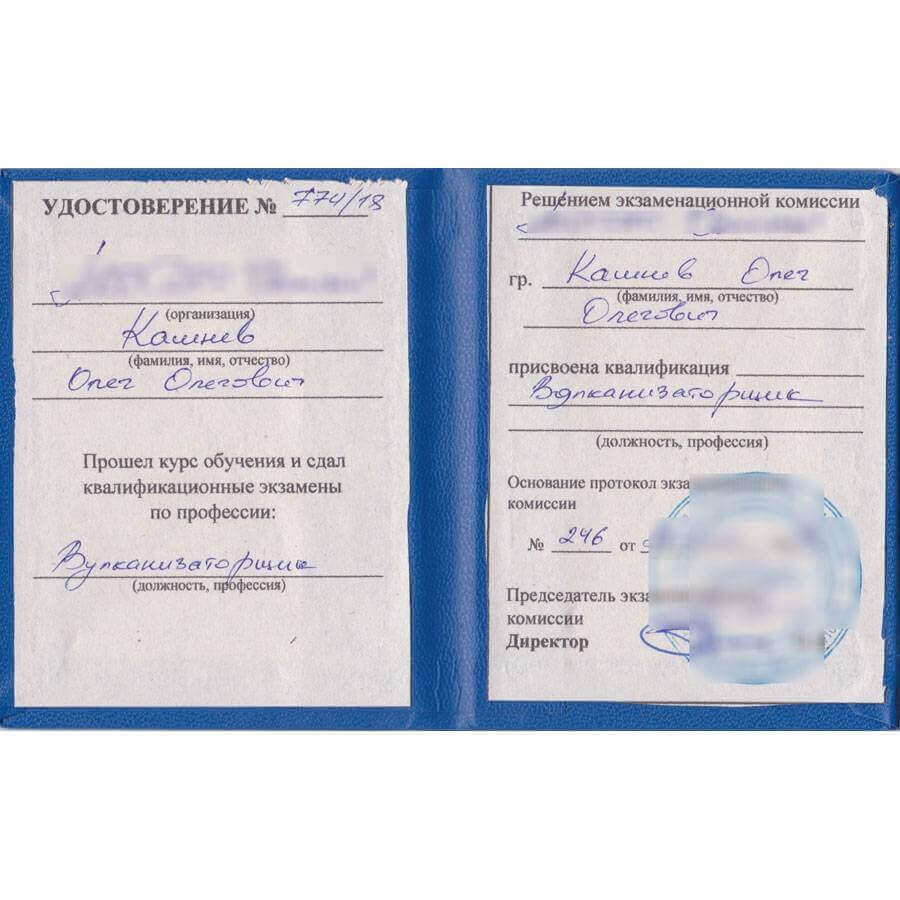 УДОСТОВЕРЕНИЕ № 774/18
(организация)
Кашнев
(фамилия, имя, отчество)
Олег Олегович
Прошел курс обучения и сдал
квалификационные экзамены
по профессии:
Вулканизаторщик
(должность, профессия)
Решением экзаменационной комиссии
гр. Кашнев Олег
(фамилия, имя, отчество)
Олегович
присвоена квалификация
Вулканизаторщик
(должность, профессия)
Основание протокол экза
комиссии
№ 246 от
Председатель экза
комиссии
Директор